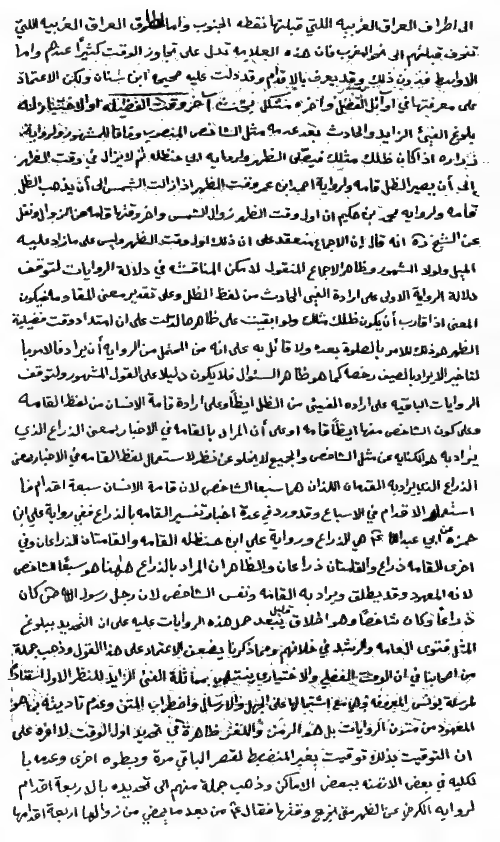 الى اطراف العراق الغربيه اللتي قبلتها نقطه الجنوب واما اطراف العراق الغربيه اللتي
تنحرف قبلتهم الى نحو المغرب فان هذه العلامه تدل على تجاوز الوقت كثيرا عندهم واما
الاوسط فبدون ذلك وقد يعرف بالاقدام وقد دلت عليه صحيحه ابن سنان ولكن الاعتماد
على معرفتها في اوائل الفضل وآخره مشكل وقت آخر وقت الفضيله او الاختيار له
بلوغ الفيئ الزايد والحادث بعد عدمه مثل الشاخص المنصوب وفاقا للمشهور ولرواية
زراره اذا كان ظلك مثلك فصلى الظهر ولروايه ابن حنظله ثم لا يزال في وقت الظهر
إلى أن يصير الظل قامه ولرواية احمد بن عمر وقت الظهر اذا زالت الشمس الى أن يذهب الظل
قامه ولروايه محمد بن حكيم ان اول وقت الظهر زوال الشمس واخر وقتها قامه من الزوال ونقل
عن الشيخ ره انه قال ان الاجماع منعقد على ان ذلك اول وقت الظهر وليس على ما زاد عليه
الميل ولولا الشهور وظاهر الاجماع المنقول لامكن المناقشه في دلالة الروايات لتوقف
دلالة الرواية الاولى على ارادة الفيئ الحادث من لفظ الظل وعلى تقدير معنى المقاد ما فيكون
المعنى اذا قارب أن يكون ظلك مثلك ولو ابقيت على ظاهرها لدلت على ان امتداد وقت فضيلة
الظهر هو ذلك للامر بالصلوة بعده ولا قائل به على انه من المحتمل من الروايه أن يراد فالامر بها
لتاخير الابراد بالصيف رخصه كما هو ظاهر السؤال فلا يكون دليلا على القول المشهور ولتوقف
الروايات الباقيه على اراده الفيئ من الظل ايضا وعلى ارادة قامة الانسان من لفظ القامه
وعلى كون الشاخص منها ايضا قامه او على أن المراد بالقامه في الاخبار بمعنى الذراع الذي
يراد به هو الكنايه عن مثل الشاخص والجميع لا يخلو عن نظر لاستعمال لفظ القامه في الاخبار بمعنى
الذراع الذي يراد به القدمان اللذان هما سبعا الشاخص لان قامة الانسان سبعة اقدام فا
استعمل الاقدام في الاسباع وقد ورد في عدة اخبار تفسير القامه بالذراع ففي رواية على ابن
حمزه عن ابي عبدالله ع هي الذراع ورواية علي ابن حنظله القامه والقامتان الذراعان وفي
اخرى للقامه ذراع والقامتان ذراعان والظاهر ان المراد بالذراع ههنا هو سبعا الشاخص
لانه المعهود وقد يطلق ويراد به القامه ونفس الشاخص لان رحل رسول الله ص كان
ذراعا وكان شاخصا وهو اطلاق قليل يبعد حمل هذه الروايات عليه على ان التحديد ببلوغ
المثل فتوى العامه والرشد في خلافهم ومما ذكرنا يضعف الاعتماد على هذا القول وذهب جملة
من اصحابنا في ان الوقت الفضلي والاختياري ينتهي بمماثلة الفئ الزايد للظل الاول استنادا
لمرسلة يونس المعروفه وهي مع اشتمالها على الجهل والارسال واضطراب المتن وعدم تاديته بما هو
المعهود من متون الروايات بل هو الرمز واللغز ظاهرة في تحديد اول الوقت لا اخره على
ان التوقيت بذلك توقيت بغير المنضبط لقصر الباقي مرة وبطوله اخرى وعدمه با
لكليه في بعض الازمنه ببعض الاماكن وذهب جملة منهم الى تحديده بالاربعة اقدام
لروايه الكرخي عن الظهر متى يخرج وقتها فقال ع من بعد ما يمضي من زوالها اربعة اقدامها